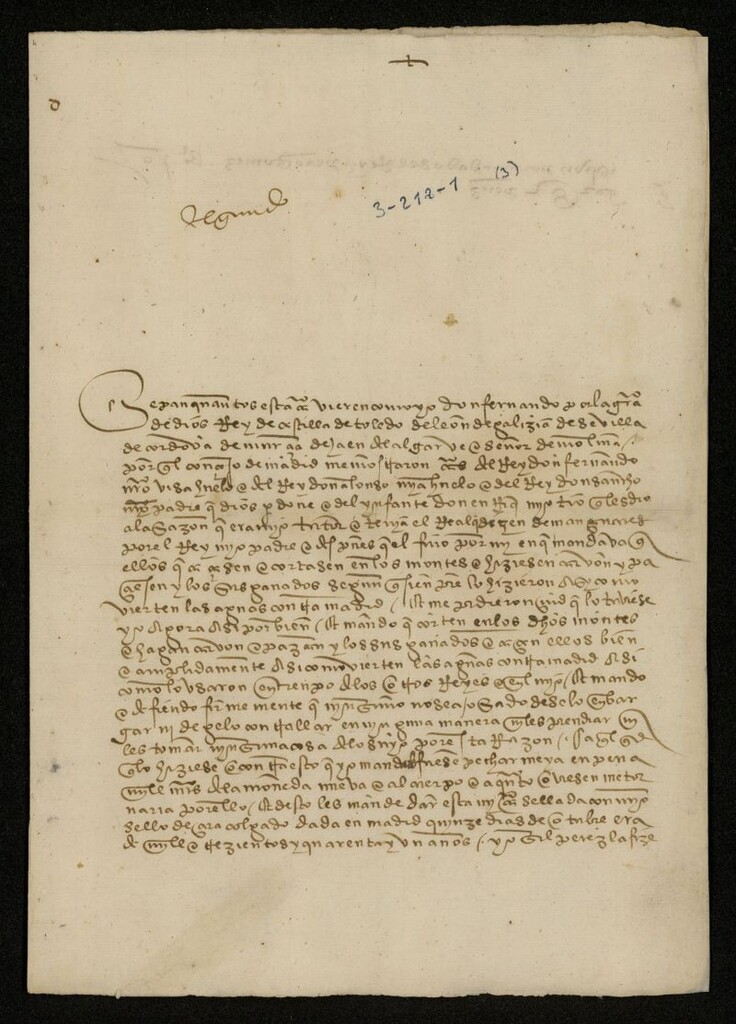 Segundo
3-212-1 (3)
Sepan quantos esta carta vieren como yo don fernando por la graçia
de dios Rey de castilla de toledo de leon de galizia de sevilla
de cordova de murçia de Jaen del algarve e señor de molina /
por quel conçejo de madrid me mostraron cartas del Rey don fernando
mi visahuelo e del Rey don alonso my ahuelo e del Rey don sancho
myo padre que dios perdone e del ynfante don enrrique myo tio que les dio
a la sazon que era myo tutor e tenian el Real de
por el Rey myo padre e despues que el fino por my en que mandava que
ellos que e cortasen en los montes e hiziesen carvon y pa
çiesen y los sus ganados segun que sienpre lo hizieron asy como
vierten las aguas contra madrid / E me pidieron que lo tuviese
yo agora asi por bien / E mando que corten en los dhos montes
e hagan carvon e pazcan y los sus ganados e en ellos bien
e cumplidamente asi como vierten las aguas contra madrid asi
como lo usaron en tienpo de los otros Reyes e del myo / E mando
e defiendo firmemente que nynguno no sea osado de se lo enbar
gar ni de gelo contrallar en nynguna manera nyn les prendar ny
les tomar nynguna cosa de lo suyo por esta Razon / Ca qual quier
que lo hiziese e contra esto que yo mando fuese pechar me ya en pena
myll mrs de la moneda nueva e al cuerpo e a quanto oviesen me tor
naria por ello / E desto les mande dar esta mi carta sellada con myo
sello de çera colgado dada en madrid quynze dias de otubre era
de myll e trezientos y quarenta y un años / yo gil perez la fize